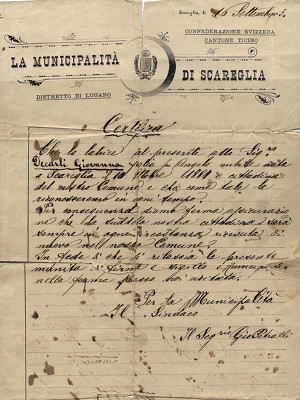 Scareglia, il 16 Settembre 3.
CONFEDERAZIONE SVIZZERA
CANTONE TICINO
LA MUNICIPALITÀ
DI SCAREGLIA
DISTRETTO DI LUGANO
Certifica
Che la latrice del presente atto Sigra
Decarli Giovanna figlia fu Angelo nubile nata
a Scareglia 1881 è cittadina
del nostro Comune e che come tale la
riconosceremo in ogni tempo.
Per conseguenza diamo ferma assicurazione
ne che la suddetta nostra cittadina sarà
sempre in ogni circostanza ricevuta di
nuovo nel nostro Comune.
In fede di che si rilascia la presente
munita di firma e
nella forma presso noi usitata.
Per la Municipalità
Il Sindaco
Il Segrio